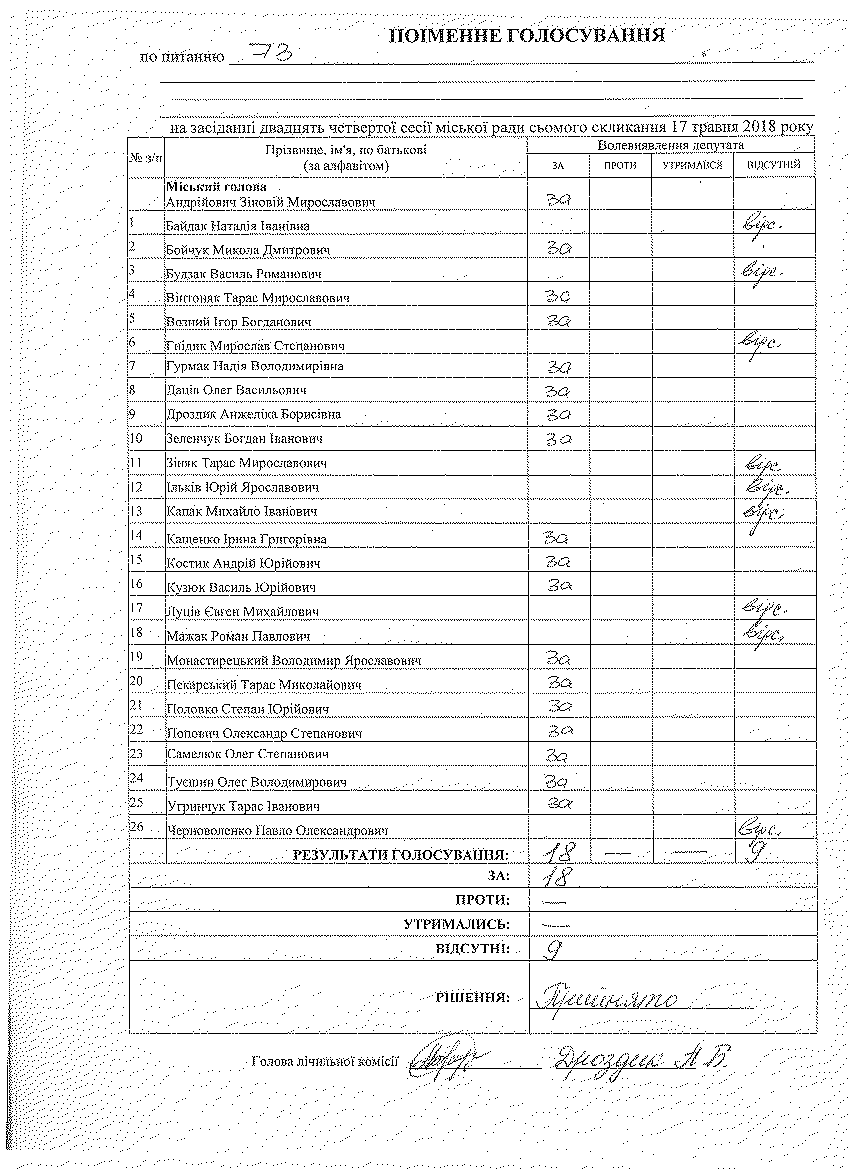 ПОІМЕННЕ ГОЛОСУВАННЯ
по питанню 73
на засіданні двадцять четвертої сесії міської ради сьомого скликання 17 травня 2018 року
№ з/п Прізвище, ім'я, по батькові (за алфавітом) Волевиявлення депутата
ЗА ПРОТИ УТРИМАВСЯ ВІДСУТНІЙ
Міський голова
Андрійович Зіновій Мирославович за
1 Байдак Наталія Іванівна відс.
2 Бойчук Микола Дмитрович за
3 Будзак Василь Романович відс.
4 Вінтоняк Тарас Мирославович за
5 Возний Ігор Богданович за
6 Гнідик Мирослав Степанович відс.
7 Гурмак Надія Володимирівна за
8 Даців Олег Васильович за
9 Дроздик Анжеліка Борисівна за
10 Зеленчук Богдан Іванович за
11 Зіняк Тарас Мирославович відс.
12 Ільків Юрій Ярославович відс.
13 Капак Михайло Іванович відс.
14 Кащенко Ірина Григорівна за
15 Костик Андрій Юрійович за
16 Кузюк Василь Юрійович за
17 Луців Євген Михайлович відс.
18 Мажак Роман Павлович відс.
19 Монастирецький Володимир Ярославович за
20 Пекарський Тарас Миколайович за
21 Половко Степан Юрійович за
22 Попович Олександр Степанович за
23 Самелюк Олег Степанович за
24 Туєшин Олег Володимирович за
25 Угринчук Тарас Іванович за
26 Черноволенко Павло Олександрович відс.
РЕЗУЛЬТАТИ ГОЛОСУВАННЯ: 18 — — 9
ЗА: 18
ПРОТИ: —
УТРИМАЛИСЬ: —
ВІДСУТНІ: 9
РІШЕННЯ: Прийнято
Голова лічильної комісії Дроздик А Б